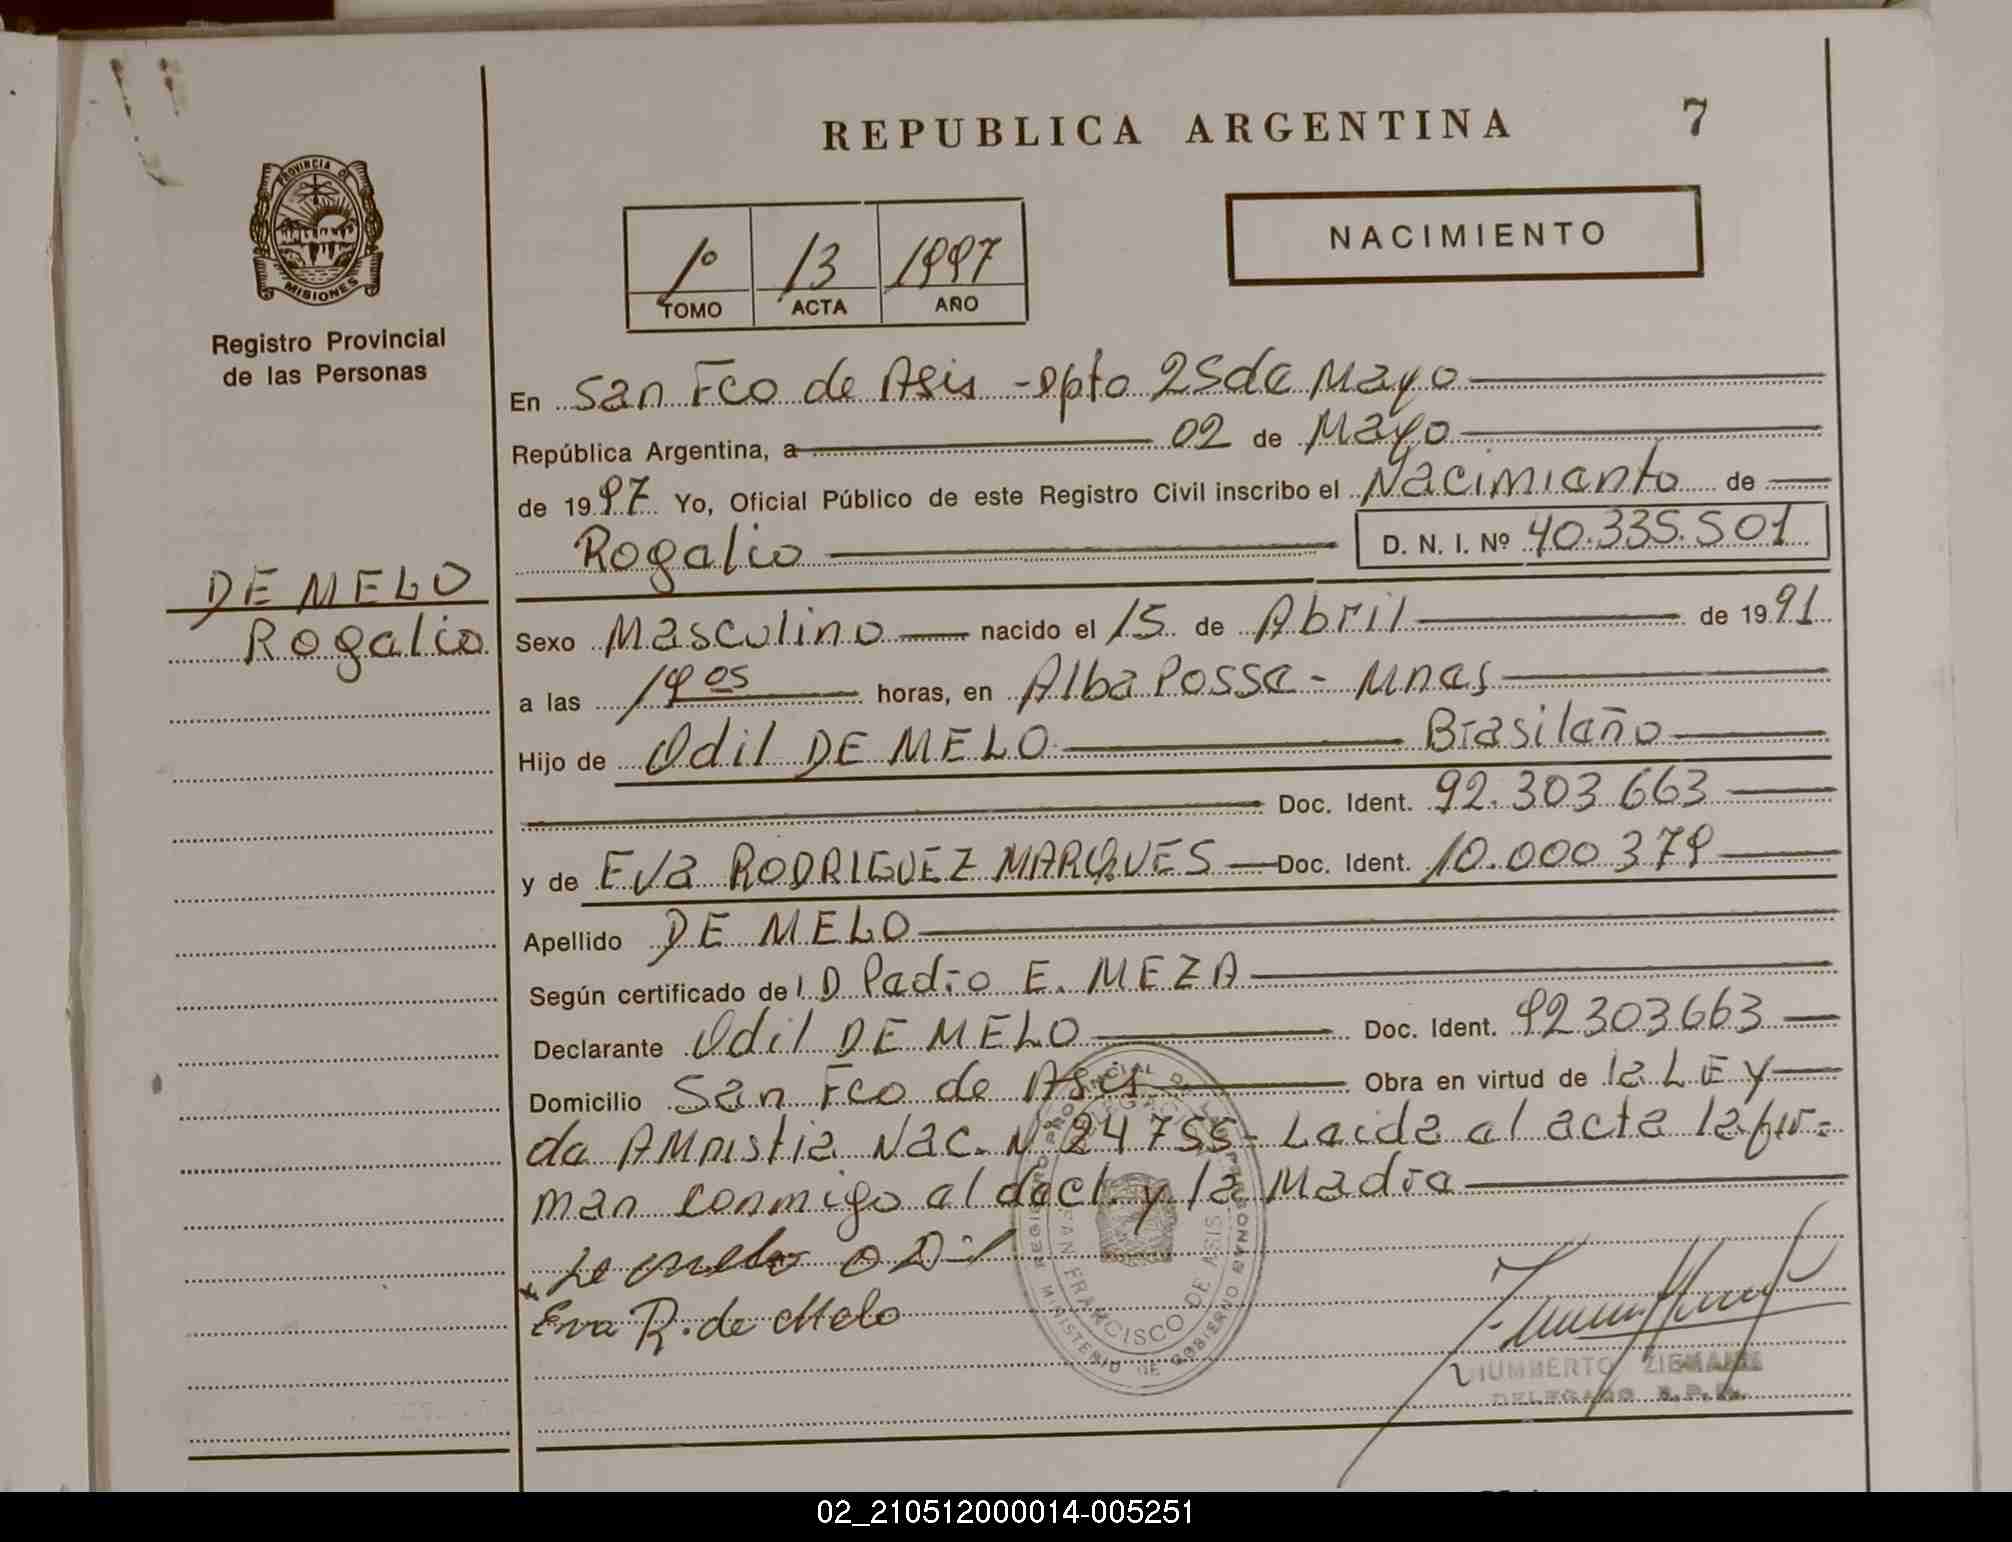 REPUBLICA ARGENTINA
7
PROVINCIA DE
MISIONES
Registro Provincial
de las Personas
1º 13 1997
TOMO ACTA AÑO
NACIMIENTO
En San Fco de Asis - Dpto 25 de Mayo
República Argentina, a 02 de Mayo
de 1997 Yo, Oficial Público de este Registro Civil inscribo el Nacimiento de
Rogelio D. N. I. Nº 40.335.501
DE MELO
Rogelio
Sexo Masculino nacido el 15 de Abril de 1991
a las 19 05 horas, en Alba Posse - Mnes
Hijo de Odil DE MELO Brasileño
Doc. Ident. 92.303.663
y de Eva RODRIGUEZ MARQUES Doc. Ident. 10.000.379
Apellido DE MELO
Según certificado de ID Pedro E. MEZA
Declarante Odil DE MELO Doc. Ident. 92303663
Domicilio San Fco de Asis Obra en virtud de la LEY
de AMnistia Nac. Nº 24755 - Leida el acta la fir=
man conmigo el decl. y la Madre
De melo ODil
Eva R. de Melo
REGISTRO PROVINCIAL DE LAS PERSONAS
SAN FRANCISCO DE ASIS
MINISTERIO DE GOBIERNO
HUMBERTO
DELEGADO R.P.P.
02_210512000014-005251